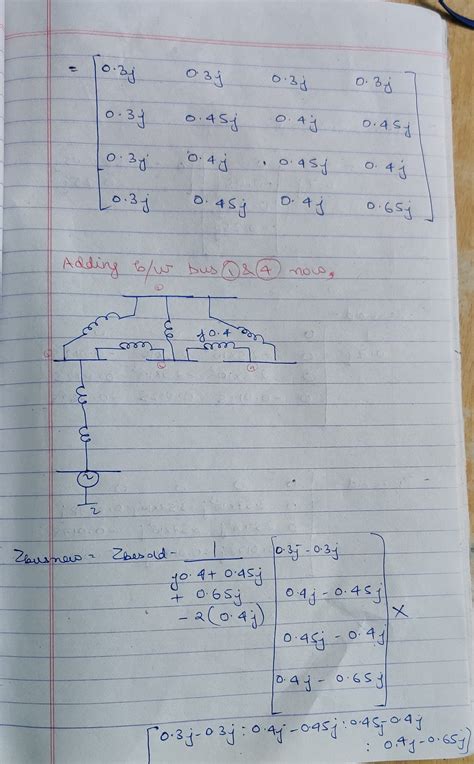 = [ 0.3j 0.3j 0.3j 0.3j
0.3j 0.45j 0.4j 0.45j
0.3j 0.4j 0.45j 0.4j
0.3j 0.45j 0.4j 0.65j ]
Adding b/w bus ① & ④ now,
j0.4
2
Zbusnew = Zbusold - 1 / (j0.4 + 0.45j + 0.65j - 2(0.4j)) [ 0.3j - 0.3j
0.4j - 0.45j
0.45j - 0.4j
0.4j - 0.65j ] X
[ 0.3j - 0.3j : 0.4j - 0.45j : 0.45 - 0.4j
: 0.4j - 0.65j ]